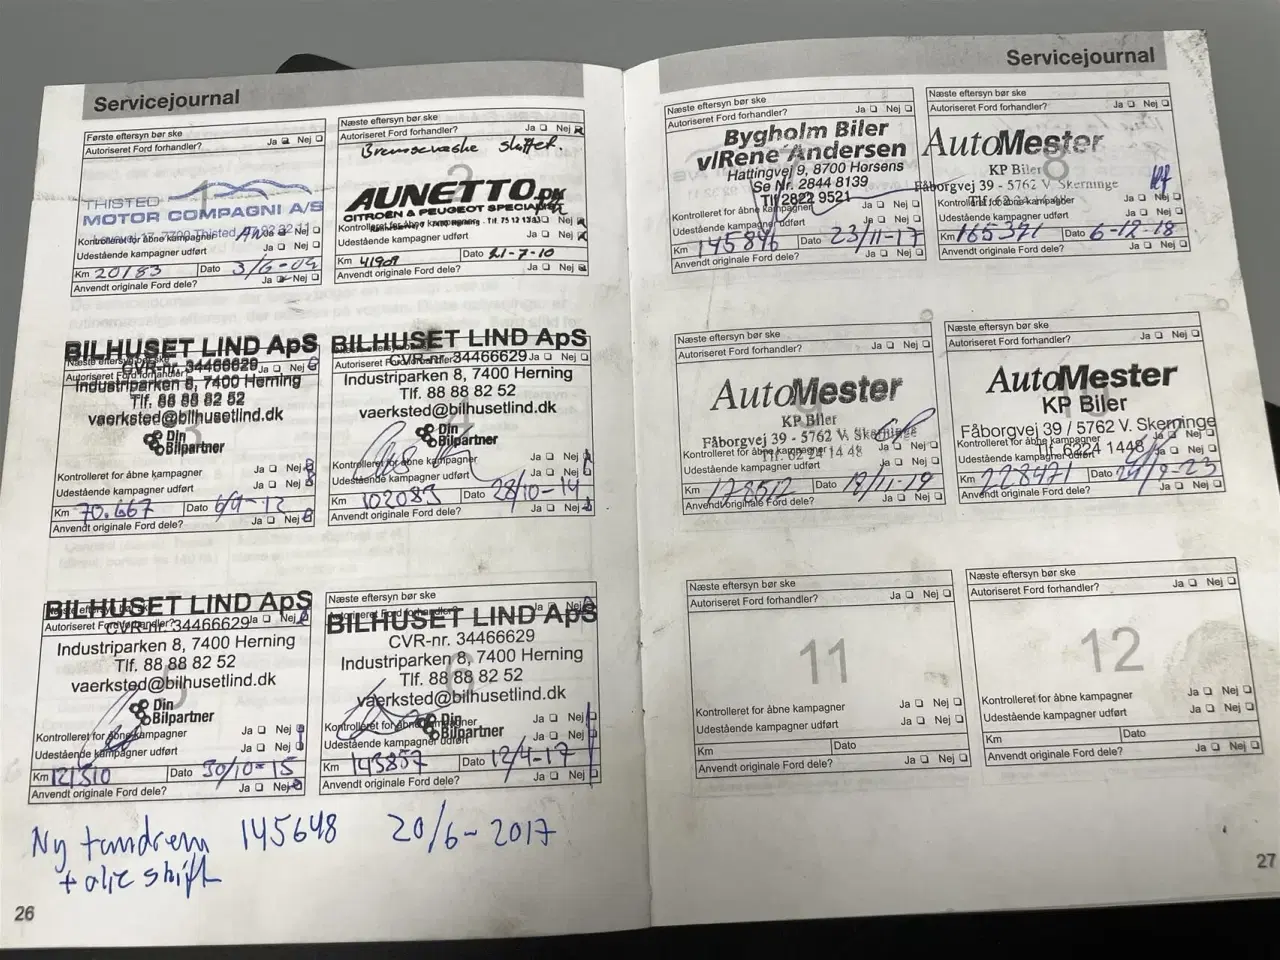 Servicejournal
Første eftersyn bør ske
Autoriseret Ford forhandler? Ja Nej
1
THISTED
MOTOR COMPAGNI A/S
Kontrolleret for åbne kampagner Ja Nej
Udestående kampagner udført Ja Nej
Km 20183 Dato 3/6-09
Anvendt originale Ford dele? Ja Nej
Næste eftersyn bør ske
Autoriseret Ford forhandler? Ja Nej
Bremsevæske skiftet.
2
AUNETTO.DK
CITROËN & PEUGEOT SPECIALIST
Kontrolleret for åbne kampagner Ja Nej
Udestående kampagner udført Ja Nej
Km Dato 21-7-10
Anvendt originale Ford dele? Ja Nej
BILHUSET LIND ApS
Næste eftersyn bør ske
CVR-nr. 34466629
Autoriseret Ford forhandler? Ja Nej
Industriparken 8, 7400 Herning
Tlf. 88 88 82 52
vaerksted@bilhusetlind.dk
3
Din
Bilpartner
Kontrolleret for åbne kampagner Ja Nej
Udestående kampagner udført Ja Nej
Km 70.667 Dato 6/9-12
Anvendt originale Ford dele? Ja Nej
BILHUSET LIND ApS
Næste eftersyn bør ske
CVR-nr. 34466629
Autoriseret Ford forhandler? Ja Nej
Industriparken 8, 7400 Herning
Tlf. 88 88 82 52
vaerksted@bilhusetlind.dk
4
Din
Bilpartner
Kontrolleret for åbne kampagner Ja Nej
Udestående kampagner udført Ja Nej
Km 102083 Dato 28/10-14
Anvendt originale Ford dele? Ja Nej
BILHUSET LIND ApS
Næste eftersyn bør ske
CVR-nr. 34466629
Autoriseret Ford forhandler? Ja Nej
Industriparken 8, 7400 Herning
Tlf. 88 88 82 52
vaerksted@bilhusetlind.dk
5
Din
Bilpartner
Kontrolleret for åbne kampagner Ja Nej
Udestående kampagner udført Ja Nej
Km 121510 Dato 30/10-15
Anvendt originale Ford dele? Ja Nej
Næste eftersyn bør ske
Autoriseret Ford forhandler? Ja Nej
BILHUSET LIND ApS
CVR-nr. 34466629
Industriparken 8, 7400 Herning
Tlf. 88 88 82 52
vaerksted@bilhusetlind.dk
6
Din
Bilpartner
Kontrolleret for åbne kampagner Ja Nej
Udestående kampagner udført Ja Nej
Km 143857 Dato 12/4-17
Anvendt originale Ford dele? Ja Nej
Ny tandrem 145648 20/6-2017
+ olie skift
26
Servicejournal
Næste eftersyn bør ske
Autoriseret Ford forhandler? Ja Nej
Bygholm Biler
v/Rene Andersen
Hattingvej 9, 8700 Horsens
Se Nr. 2844 8139
Tlf 2822 9521
Kontrolleret for åbne kampagner Ja Nej
Udestående kampagner udført Ja Nej
Km 145846 Dato 23/11-17
Anvendt originale Ford dele? Ja Nej
Næste eftersyn bør ske
Autoriseret Ford forhandler? Ja Nej
AutoMester
8
KP Biler
Fåborgvej 39 - 5762 V. Skerninge
Kontrolleret for åbne kampagner Ja Nej
Udestående kampagner udført Ja Nej
Km 165371 Dato 6-12-18
Anvendt originale Ford dele? Ja Nej
Næste eftersyn bør ske
Autoriseret Ford forhandler? Ja Nej
AutoMester
9
KP Biler
Fåborgvej 39 - 5762 V. Skerninge
Tlf. 62 24 14 48
Kontrolleret for åbne kampagner Ja Nej
Udestående kampagner udført Ja Nej
Km 178512 Dato 18/11-19
Anvendt originale Ford dele? Ja Nej
Næste eftersyn bør ske
Autoriseret Ford forhandler? Ja Nej
AutoMester
KP Biler
Fåborgvej 39 / 5762 V. Skerninge
Kontrolleret for åbne kampagner Ja Nej
Tlf. 6224 1448
Udestående kampagner udført Ja Nej
Km 228471 Dato
Anvendt originale Ford dele? Ja Nej
Næste eftersyn bør ske
Autoriseret Ford forhandler? Ja Nej
11
Kontrolleret for åbne kampagner Ja Nej
Udestående kampagner udført Ja Nej
Km Dato
Anvendt originale Ford dele? Ja Nej
Næste eftersyn bør ske
Autoriseret Ford forhandler? Ja Nej
12
Kontrolleret for åbne kampagner Ja Nej
Udestående kampagner udført Ja Nej
Km Dato
Anvendt originale Ford dele? Ja Nej
27